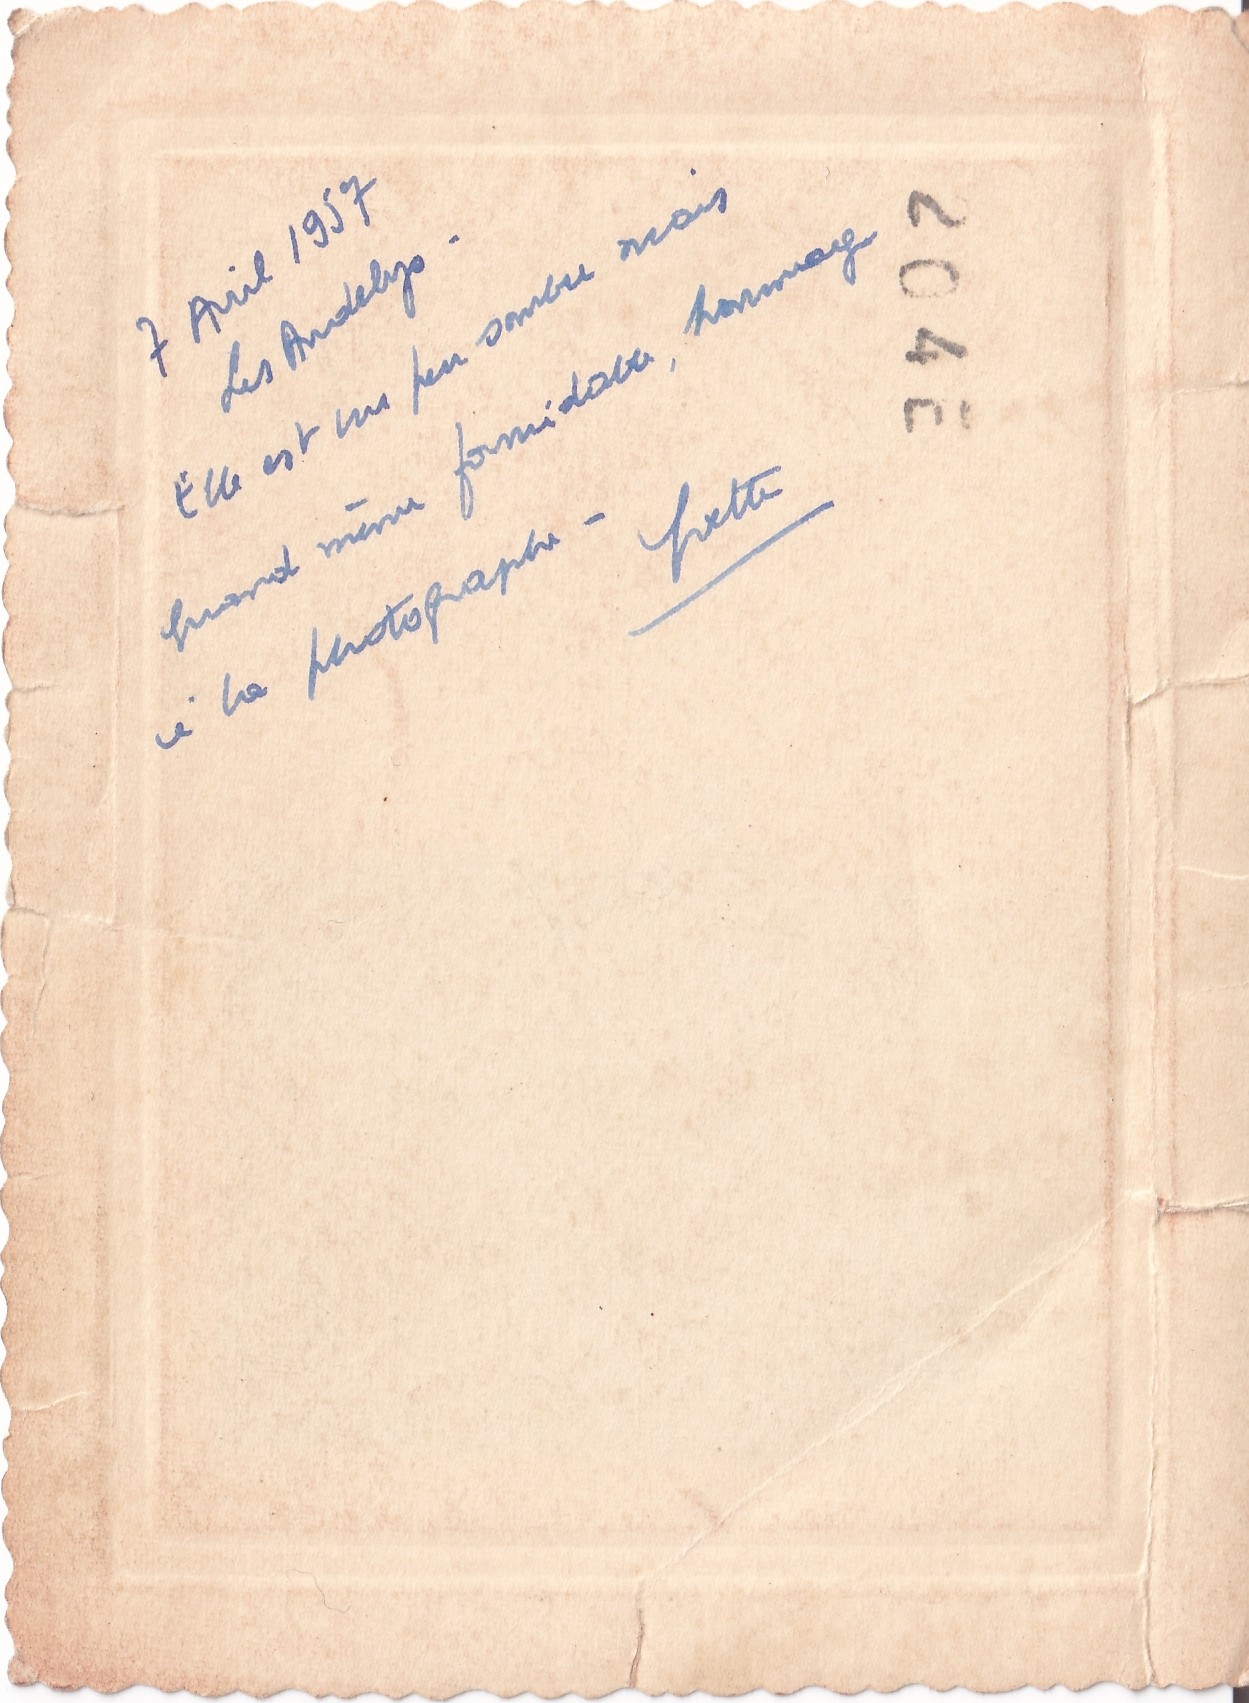 7 Avril 1957
Les Andelys -
Elle est un peu sombre mais
quand même formidable, hommage
à la photographe - Yvette
204